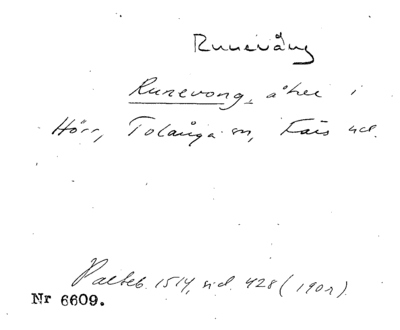 Runevång
Runevong, åker i
Hörr, Tolånga sn, Färs hd.
Palteb. 1514, sid. 428 (190r).
Nr 6609.